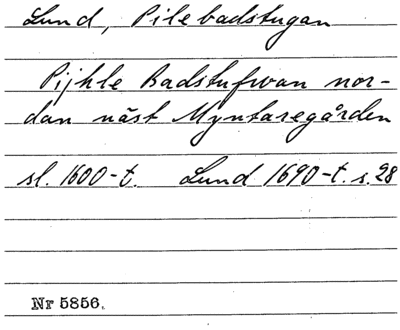 Lund, Pilebadstugan
Pijhle Badstufwan nor-
dan näst Myntaregården
sl. 1600-t. Lund 1690-t. s. 28
Nr 5856.